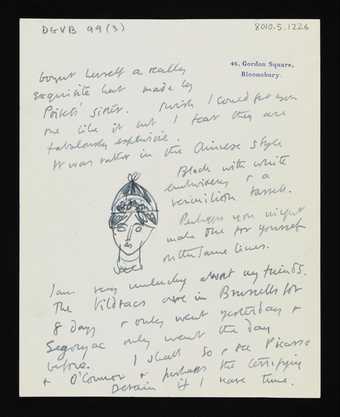 DGVB 99 (3)
8010.5.1226
46, Gordon Square,
Bloomsbury.
bought herself a really
exquisite hat made by
Poiret's sister. I wish I could get you
one like it but I fear they are
fabulously expensive.
It was rather in the Chinese style
Black with white
embroidery & a
vermilion tassel.
Perhaps you might
make one for yourself
on the same lines.
I am very unlucky about my friends.
The Vildracs were in Brussels for
8 days & only went yesterday &
Segonzac only went the day
before. I shall see Picasso
& O'Connor & perhaps the terrifying
Derain if I have time.